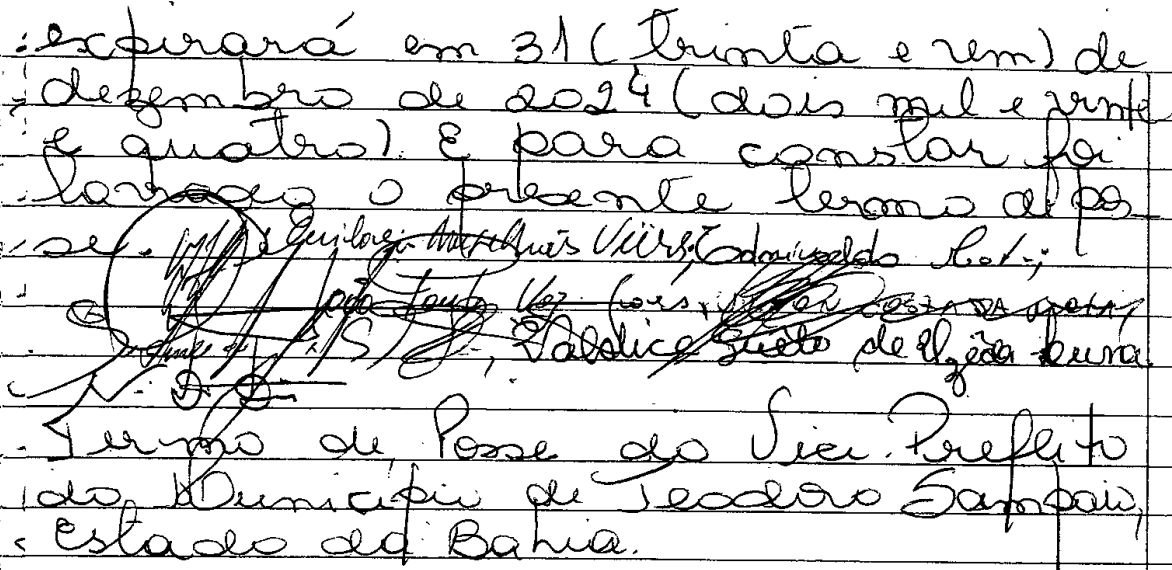 expirará em 31 (trinta e um) de
dezembro de 2024 (dois mil e vinte
e quatro). E para constar foi
lavrado o presente termo de pos
se.
COSTA DA MOTA,
Valdice
Termo de Posse do Vice-Prefeito
do Município de Teodoro Sampaio,
Estado da Bahia.